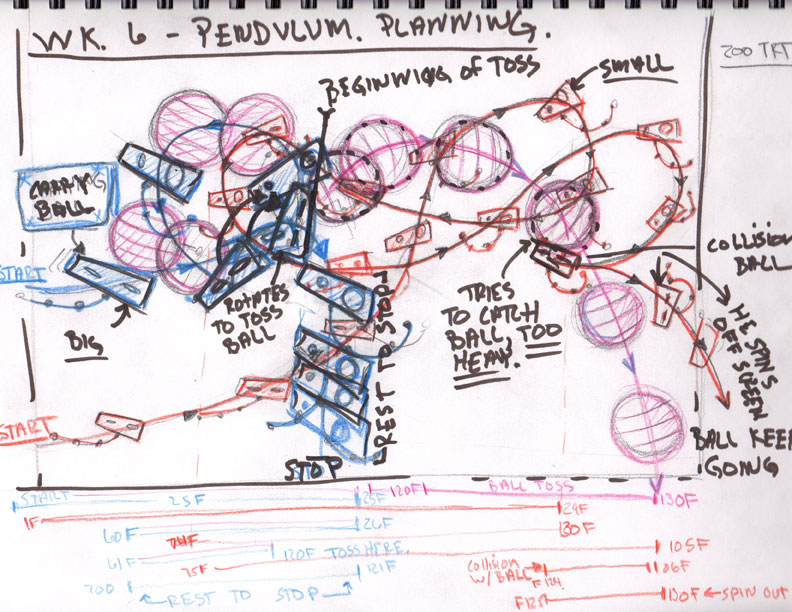 WK. 6 - PENDULUM. PLANNING.
200 TRT
BEGINNING OF TOSS
SMALL
CARRYING
BALL
START
BIG
ROTATES
TO TOSS
BALL
REST TO STOP
TRIES
TO CATCH
BALL, TOO
HEAVY.
COLLISION
BALL
HE SPINS
OFF SCREEN
BALL KEEP
GOING
START
STOP
START 25F 25F 120F BALL TOSS 130F
1F 29F
60F 26F 30F
61F 120F TOSS HERE. 105F
75F 121F COLLISION
W/BALL F124 126F
200 REST TO STOP
F125 130F ← SPIN OUT